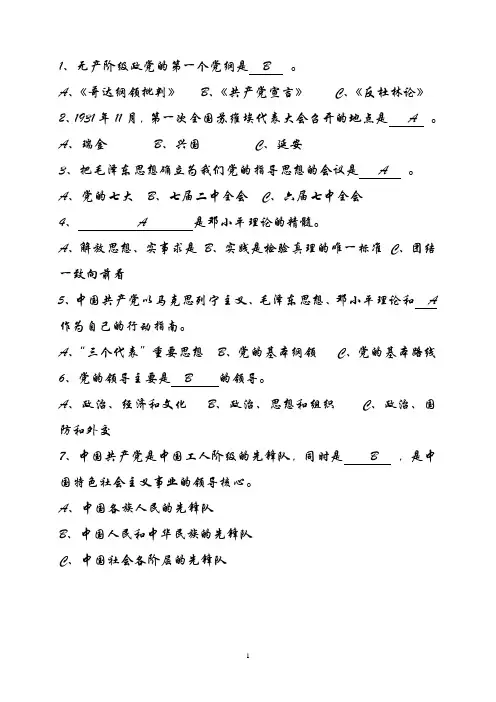 1、无产阶级政党的第一个党纲是 B 。
A、《哥达纲领批判》 B、《共产党宣言》 C、《反杜林论》
2、1931年11月，第一次全国苏维埃代表大会召开的地点是 A 。
A、瑞金 B、兴国 C、延安
3、把毛泽东思想确立为我们党的指导思想的会议是 A 。
A、党的七大 B、七届二中全会 C、六届七中全会
4、 A 是邓小平理论的精髓。
A、解放思想、实事求是 B、实践是检验真理的唯一标准 C、团结
一致向前看
5、中国共产党以马克思列宁主义、毛泽东思想、邓小平理论和 A
作为自己的行动指南。
A、“三个代表”重要思想 B、党的基本纲领 C、党的基本路线
6、党的领导主要是 B 的领导。
A、政治、经济和文化 B、政治、思想和组织 C、政治、国
防和外交
7、中国共产党是中国工人阶级的先锋队，同时是 B ，是中
国特色社会主义事业的领导核心。
A、中国各族人民的先锋队
B、中国人民和中华民族的先锋队
C、中国社会各阶层的先锋队
1